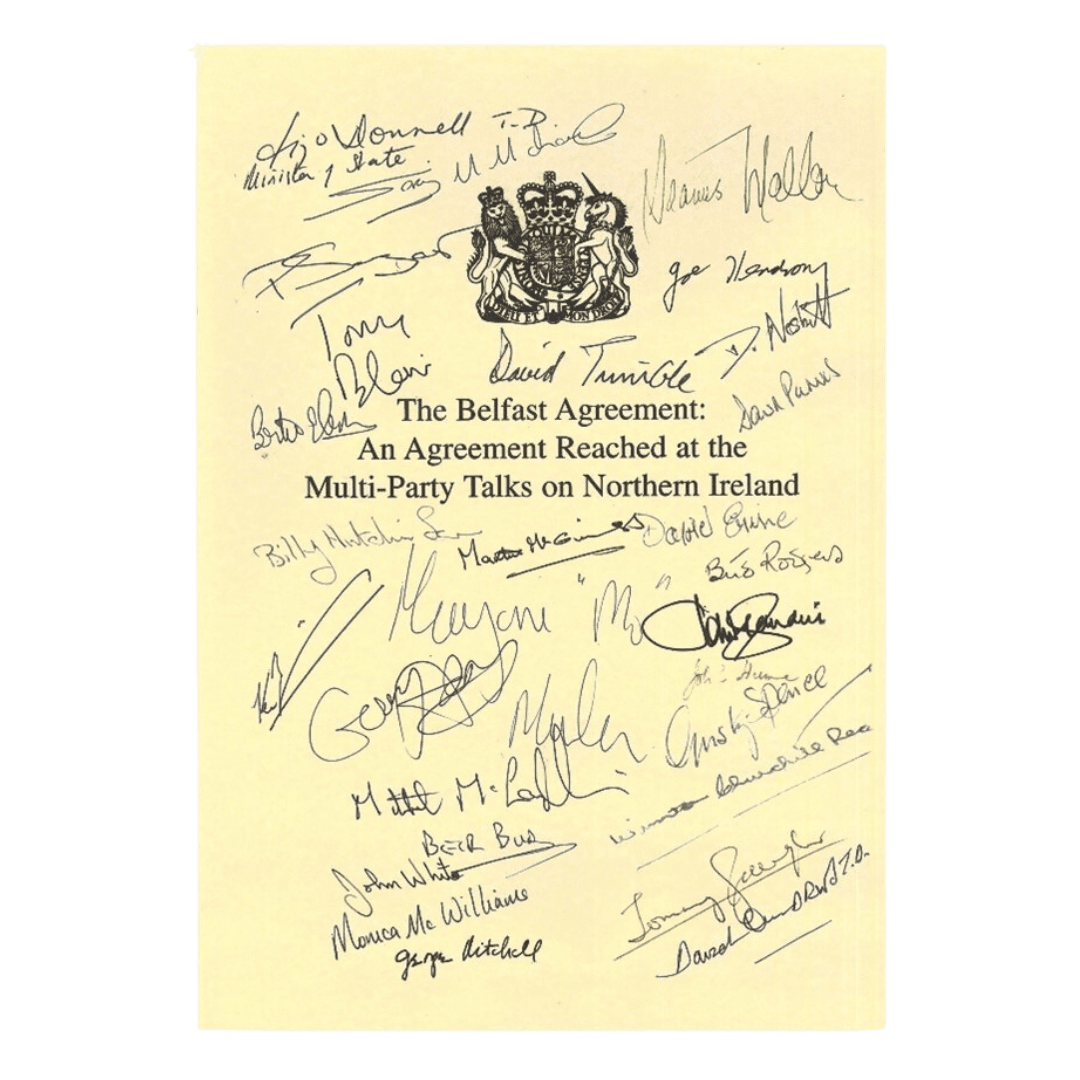 Liz O'Donnell T.D
Minister of State
Gary McMichael
Seamus Mallon
DIEU ET MON DROIT
Joe Hendron
D. Nesbitt
Tony
Blair
David Trimble
Bertie Ahern
The Belfast Agreement:
An Agreement Reached at the
Multi-Party Talks on Northern Ireland
Billy Hutchinson
Martin McGuinness
David Ervine
Bríd Rodgers
Marjorie "Mo"
Gerry Adams
Mowlam
John Hume
Gusty Spence
Winston Churchill Rea
Mitchel McLaughlin
John White
Monica McWilliams
George Mitchell
Tommy Gallagher
David Andrews T.D.